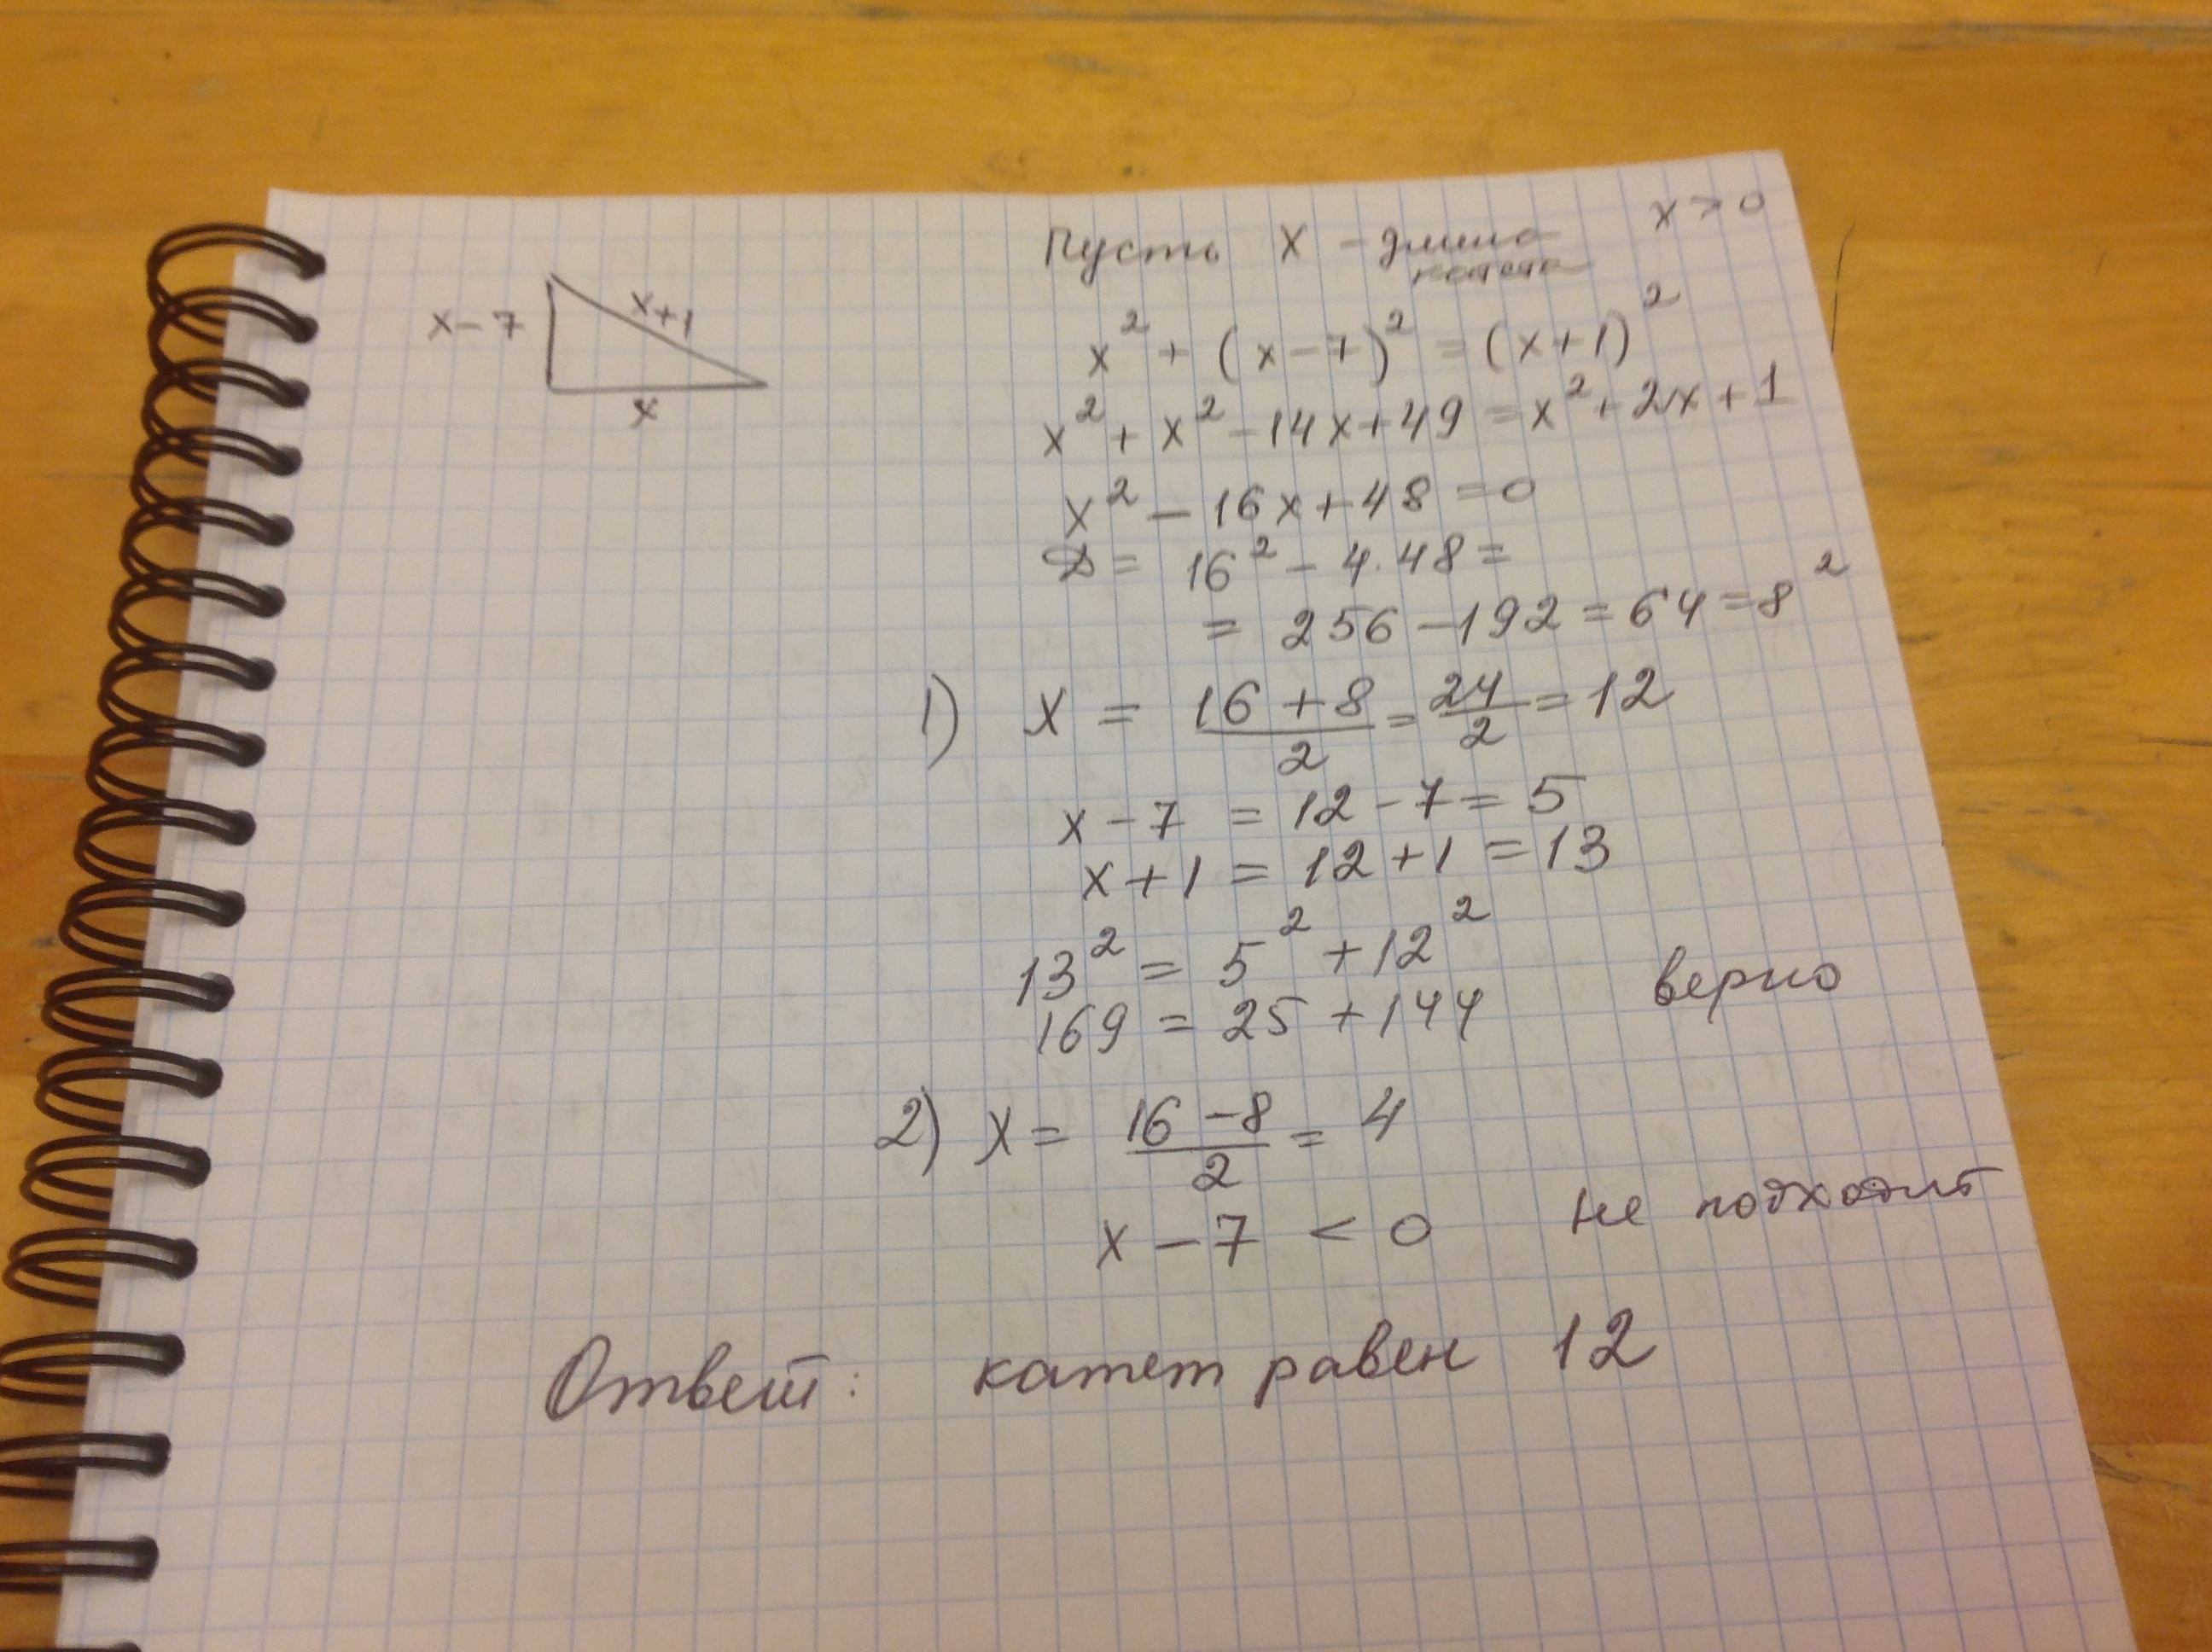 Пусть x - длина x > 0
катета
x - 7
x+1
x
x² + (x-7)² = (x+1)²
x² + x² - 14x + 49 = x² + 2x + 1
x² - 16x + 48 = 0
D = 16² - 4·48 =
= 256 - 192 = 64 = 8²
1) x = (16 + 8)/2 = 24/2 = 12
x - 7 = 12 - 7 = 5
x + 1 = 12 + 1 = 13
13² = 5² + 12²
169 = 25 + 144 верно
2) x = (16 - 8)/2 = 4
x - 7 < 0 не подходит
Ответ: катет равен 12